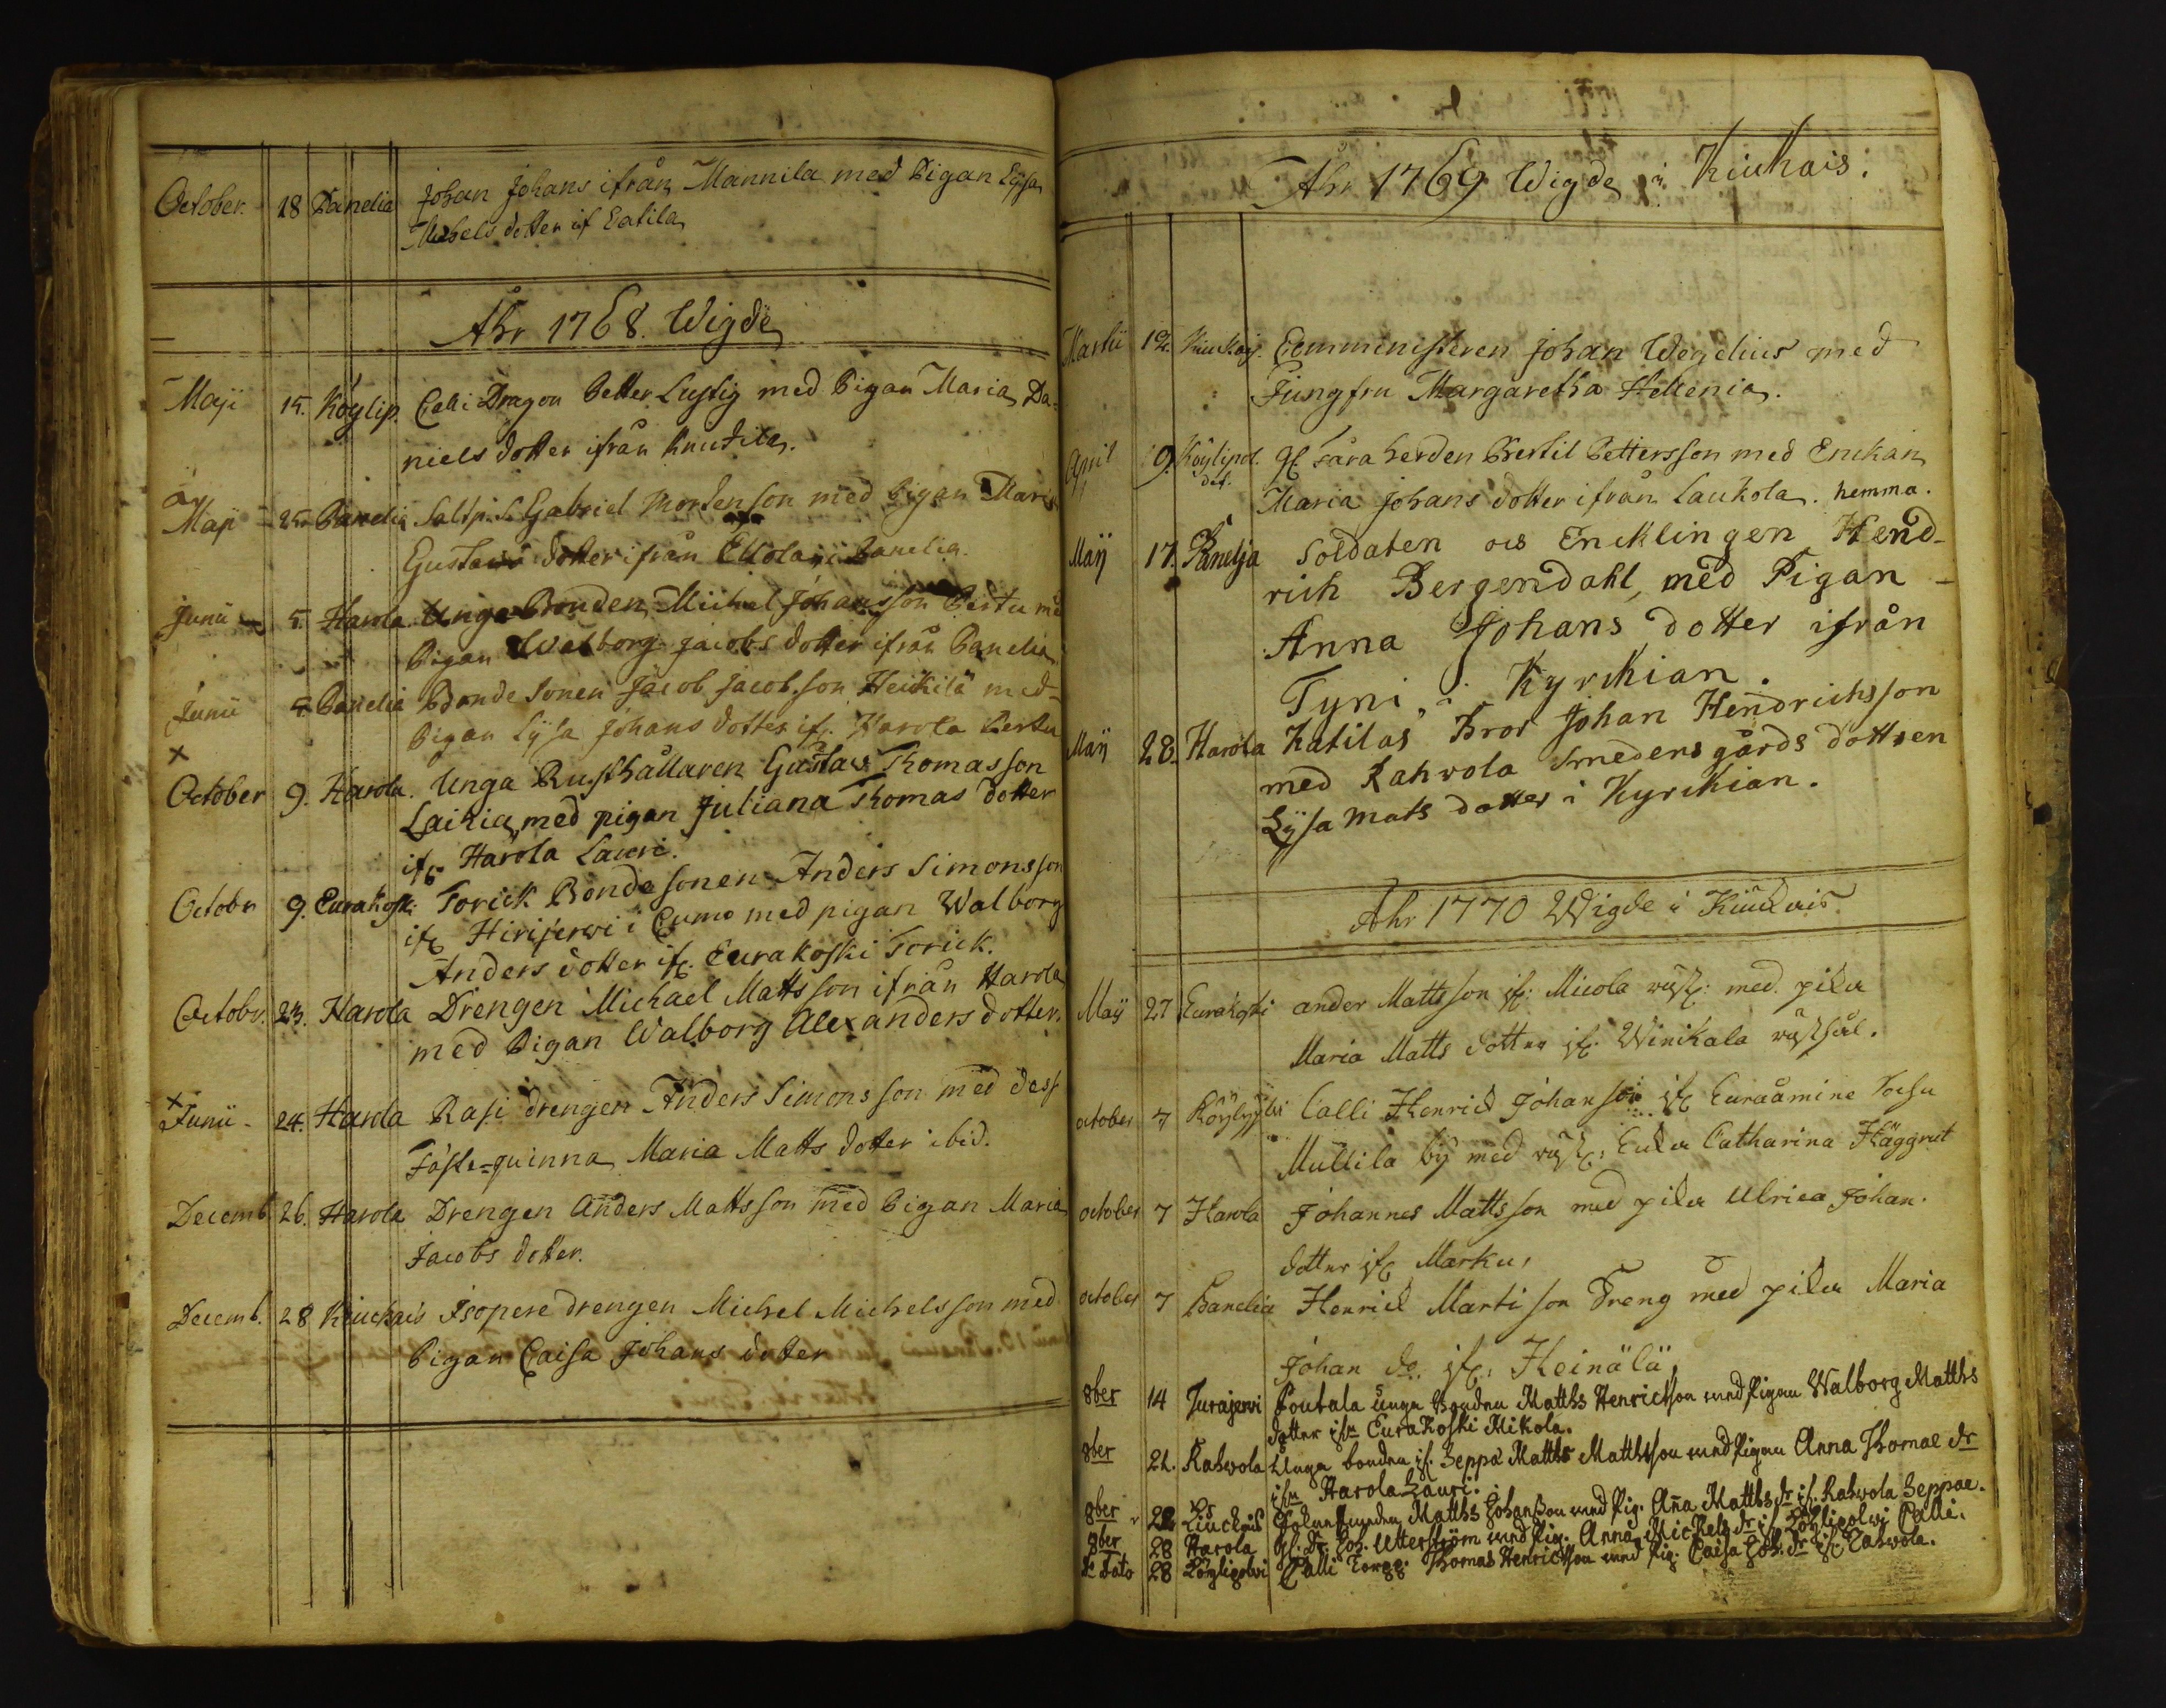 October. 18 Panelia Johan Johans ifrån Mannila med Pigan Lysa
Michels dotter if Eatila
Åhr 1768. Wigde
Maji 15. Köylip. Calli Dragon Petter Lustig med Pigan Maria Da=
niels dotter ifrån Knutila.
Maji 25. Panelia Saltp. S. Gabriel Mortenson med Pigan Maria
Gustavs dotter ifrån Ellola i Panelia.
Junii 5. Harola Unge Bonden Michel Johansson Pertu med
Pigan Walborg Jacobs dotter ifrån Panelia
Junii 5. Panelia Bonde Sonen Jacob Jacobsson Heikilä med
Pigan Lysa Johans dotter if. Harola Pertu
October 9. Harola. Unga Rusthållaren Gustav Thomasson
Laihia, med pigan Juliana Thomas dotter
if. Harola Lauri.
Octobr 9. Eurakoski Torick Bondesonen Anders Simonsson
if. Hirijerwi i Cumo med pigan Walborg
Anders dotter if. Eurakoski Torick.
Octobr. 23. Harola Drengen Michael Mattsson ifrån Harola
med Pigan Walborg Alexanders dotter.
Junii - 24. Harola Rasi drengen Anders Simonsson med dess
Fäste=quinna Maria Matts dotter ibid.
Decemb. 26. Harola Drengen Anders Mattsson med Pigan Maria
Jacobs dotter.
Decemb. 28 Kiuckais Isopere drengen Michel Michelsson med
Pigan Caisa Johans dotter
Åhr 1769 Wigde i Kiukais.
Martii 12. Kiukais. Comministeren Johan Wegelius med
Jungfru Margaretha Hellenia.
April 9. Köylipol. gl. Fåraherden Bertil Pettersson med Enckan
Maria Johans dotter ifrån Laukola. hemma.
Maij 17. Panelja Soldaten ocs Encklingen Hend-
rich Bergendahl, med Pigan -
Anna Johans dotter ifrån
Tyni, i Kyrckian.
Maij 28. Harola Katilas Bror Johan Hendrichsson
med Rahvola Smedens gårds dottren
Lysa Mats dotter i Kyrckian.
Åhr 1770 Wigde i Kiuckais
Maij 27 Eurakoski ander Mattsson if. Micola med pika
Maria Matts dotter if. Winikala
october 7 Köylypolvi Calli Henrick Johansson if Euraåminne
Mullila by med Catharina Häggrut
october 7 Harola Johannes Mattsson med pika Ulrica Johan.
dotter if Marku,
october 7 Panelia Henrick Martisson Dreng med pika Maria
Johan dr. if. Heinälä,
8ber 14 Jurajervi Poutala Unga Bonden Matths Henricsson med Pigan Walborg Matths
dotter ifrn Eurakoski Mikola.
8ber 21. Rahvola Unga bonden if. Seppä Matths Matthsson med Pigan Anna Thomae dr
ifrn Harola Lauri.
8ber 22 Kiuckais Matths Johansson med Pig. Anna Matths dr if. Rahvola Seppae.
8ber 28 Harola Joh. Utterström med Pig. Anna Michels dr if. Köylipolvi Palli.
De Dato 28 Köylipolvi Palli Torpp. Thomas Henricsson med Pig. Caisa Joh. dr if. Rahvola.